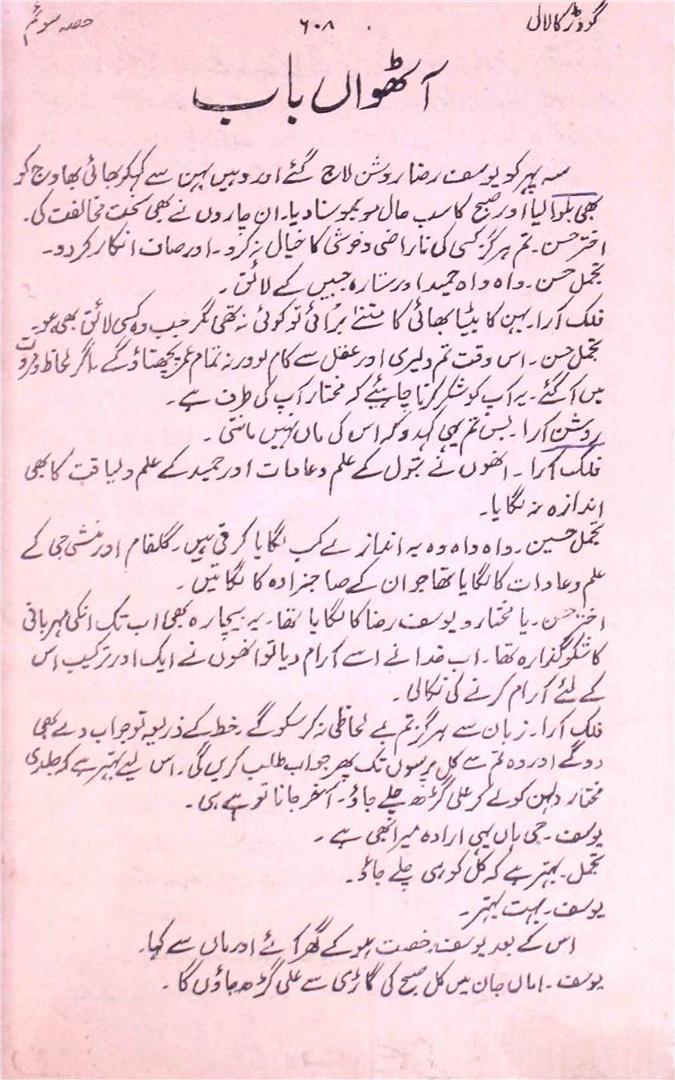 گودڑ کا لال ۶۰۸ حصہ سوئم
آٹھواں باب
سہ پہر کو یوسف رضا روشن لاج گئے اور وہیں بہن سے کہکر بھائی بھاوج کو
بھی بلوا لیا اور صبح کا سب حال مو بمو سنا دیا۔ ان چاروں نے بھی سخت مخالفت کی۔
اختر حسن۔ تم ہر گز کسی کی ناراضی و خوشی کا خیال نہ کرو۔ اور صاف انکار کر دو۔
تجمل حسن۔ واہ واہ حمید اور ستارہ جبیں کے لائق۔
فلک آرا۔ بہن کا بیٹا بھائی کا متبنے برائی تو کوئی نہ تھی مگر جب وہ کسی لائق بھی ہو۔
تجمل حسن۔ اس وقت تم دلیری اور عقل سے کام لو ورنہ تمام عمر پچھتاؤ گے اگر لحاظ و مروت
میں آ گئے۔ یہ آپ کو شکر کرنا چاہئیے کہ مختار آپ کی طرف ہے۔
روشن آرا۔ بس تم یہی کہدو کہ اس کی ماں نہیں مانتی۔
فلک آرا۔ انھوں نے بتول کے علم و عادات اور حمید کے علم و لیاقت کا بھی
اندازہ نہ لگایا۔
تجمل حسین۔ واہ واہ وہ یہ اندازے کب لگایا کرتی ہیں۔ گلفام اور منشی جی کے
علم و عادات کا لگایا تھا جو ان کے صاحبزادہ کا لگاتیں۔
اختر حسن۔ یا مختار و یوسف رضا کا لگایا تھا۔ یہ بیچارہ بھی اب تک انکی مہربانی
کا شکر گذار تھا۔ اب خدا نے اسے آرام دیا تو انھوں نے ایک اور ترکیب اس
کے لئے آرام کرنے کی نکالی۔
فلک آرا۔ زبان سے ہر گز تم بے لحاظی نہ کر سکو گے خط کے ذریعہ تو جواب دے بھی
دو گے اور وہ تم سے کل پرسوں تک پھر جواب طلب کریں گی۔ اس لیے بہتر ہے کہ جلدی
مختار دلہن کو لے کر علی گڑھ چلے جاؤ۔ آخر جانا تو ہے ہی۔
یوسف۔ جی ہاں یہی ارادہ میرا بھی ہے۔
تجمل۔ بہتر ہے کہ کل کو ہی چلے جاؤ۔
یوسف۔ بہت بہتر۔
اس کے بعد یوسف رخصت ہو کے گھر آئے اور ماں سے کہا۔
یوسف۔ اماں جان میں کل صبح کی گاڑی سے علی گڑھ جاؤں گا۔